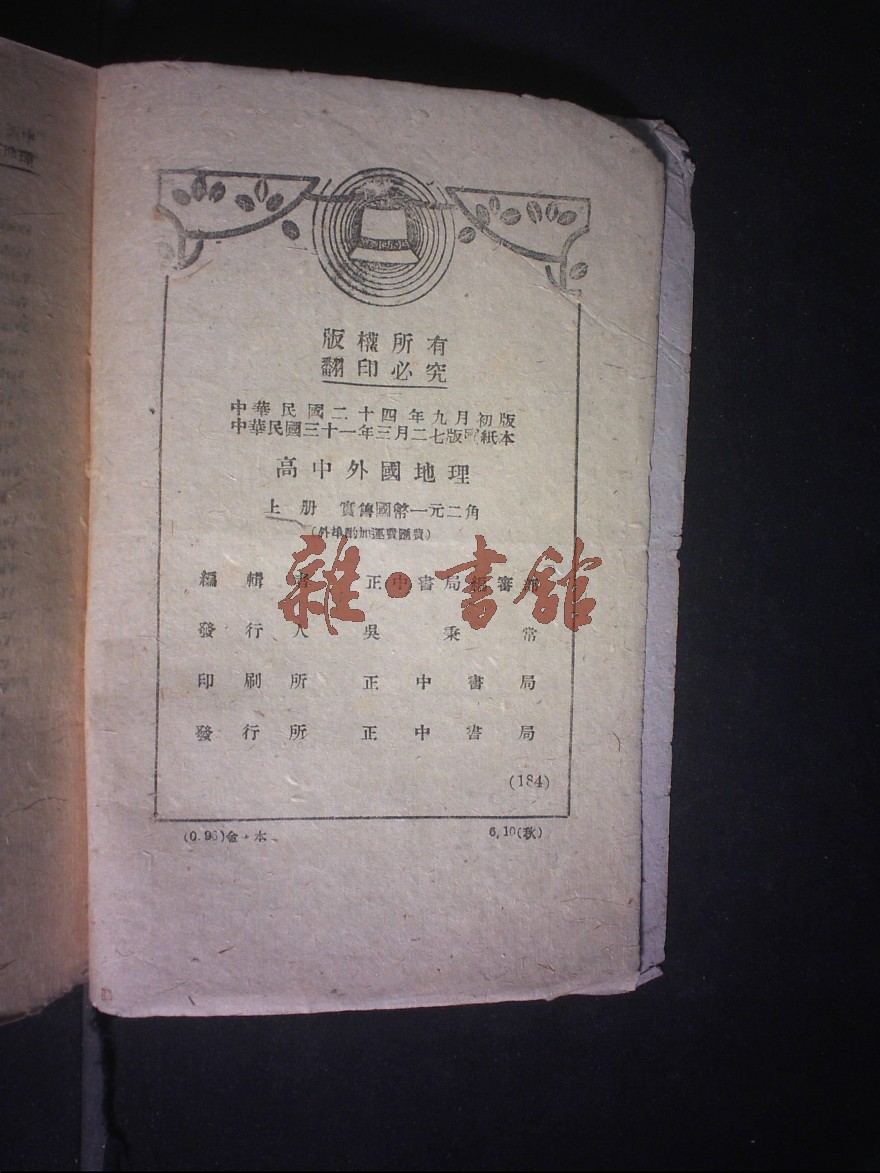 版權所有
翻印必究
中華民國二十四年九月初版
中華民國三十一年三月二七版 紙本
高中外國地理
上册 實售國幣一元二角
(外埠酌加運費匯費)
編輯者 正中書局編審
發行人 吳秉常
印刷所 正中書局
發行所 正中書局
(184)
(0.96)金·本
6,10(秋)
雜·書館